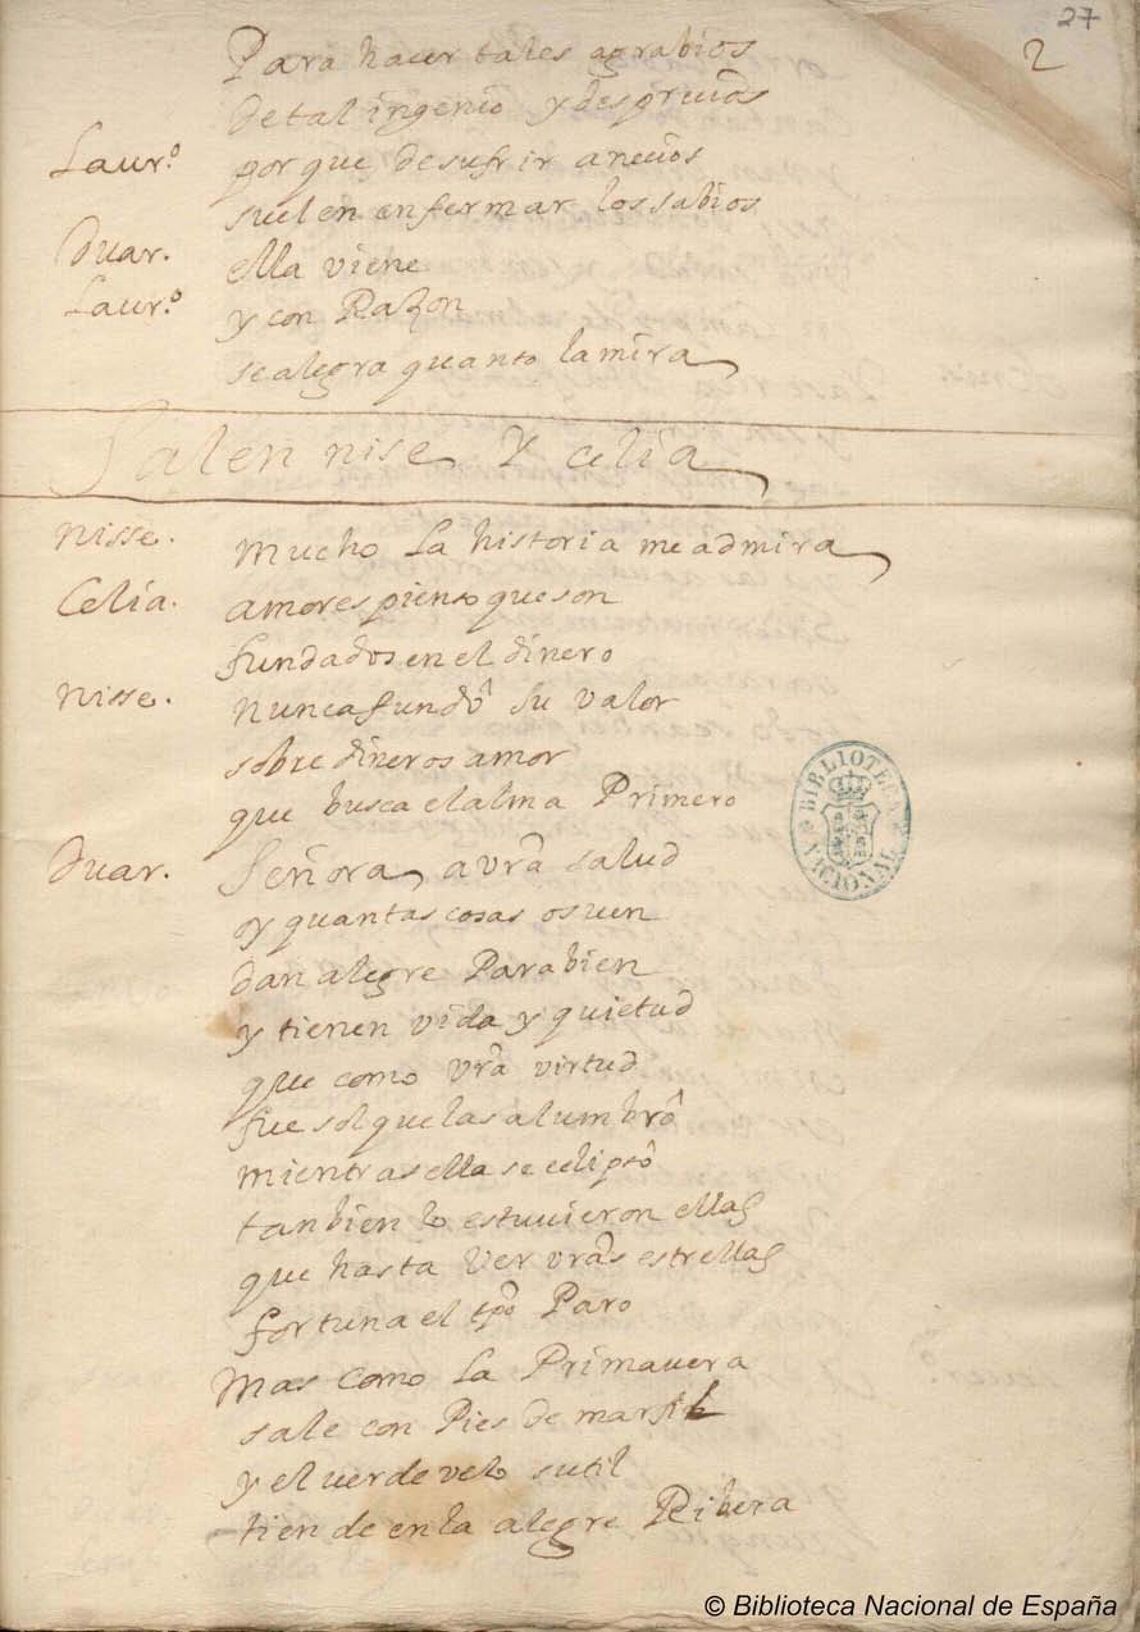 27
2
Para hacer tales agrabios
de tal ingenio y desprecios
Laur.º por que de sufrir a necios
suelen enfermar los sabios
Duar. ella viene
Laur.º y con Razon
se alegra quanto la mira
Salen nise Y celia
Nisse. Mucho La historia me admira
Celia. amores pienso que son
fundados en el dinero
Nisse. nunca fundô su valor
sobre dineros amor
que busca el alma Primero
Duar. Señora, avrâ salud
y quantas cosas os uen
dan alegre Parabien
y tienen vida y quietud
que como vrâ virtud
fue sol que las alumbrô
mientras ella se eclipsô
tanbien lo estuuieron ellas
que hasta Ver vrâs estrellas
fortuna el tpô Paro
Mas como La Primauera
sale con Pies de marfil
y el uerde velo sutil
tiende en la alegre Ribera
BIBLIOTECA NACIONAL
© Biblioteca Nacional de España